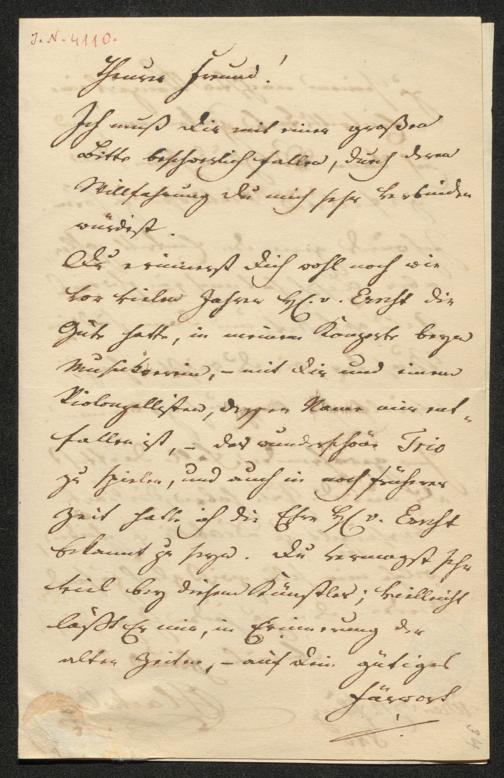 J.-N.-4110.
Theurer Freund!
Ich muß Dir mit einer großen
Bitte beschwerlich fallen, durch deren
Willfahrung Du mich sehr verbinden
würdest.
Du erinnerst Dich wohl noch wie
vor vielen Jahren H. v. die
Güte hatte, in meinem Konzerte beym
Musikverein, – mit Dir und einem
Violonzellisten, dessen Name mir ent-
fallen ist, – das wunderschöne Trio
zu spielen, und auch in noch früherer
Zeit hatte ich die Ehre H. v.
bekannt zu seyn. Du vermagst sehr
viel bey diesem Künstler; vielleicht
läßt Er mir, in Erinnerung der
alten Zeiten, – auf Dein gütiges
Fürwort
34